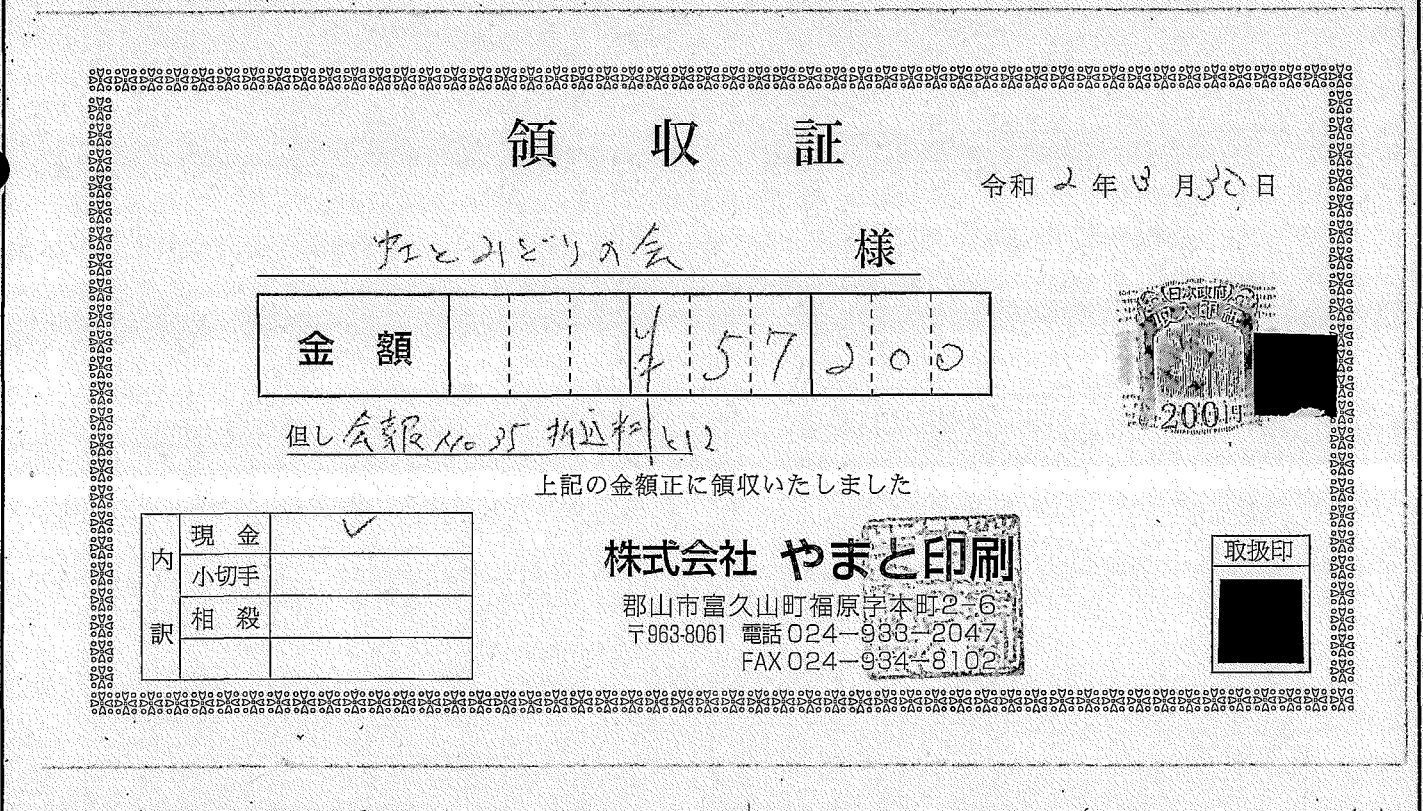 領収証
令和2年3月30日
虹とみどりの会 様
金額 ¥57200
但し 会報No.35 折込料として
上記の金額正に領収いたしました
日本政府
収入印紙
200円
内訳
現金 ✓
小切手
相殺
株式会社 やまと印刷
郡山市富久山町福原字本町2-6
〒963-8061 電話024-933-2047
FAX 024-934-8102
取扱印